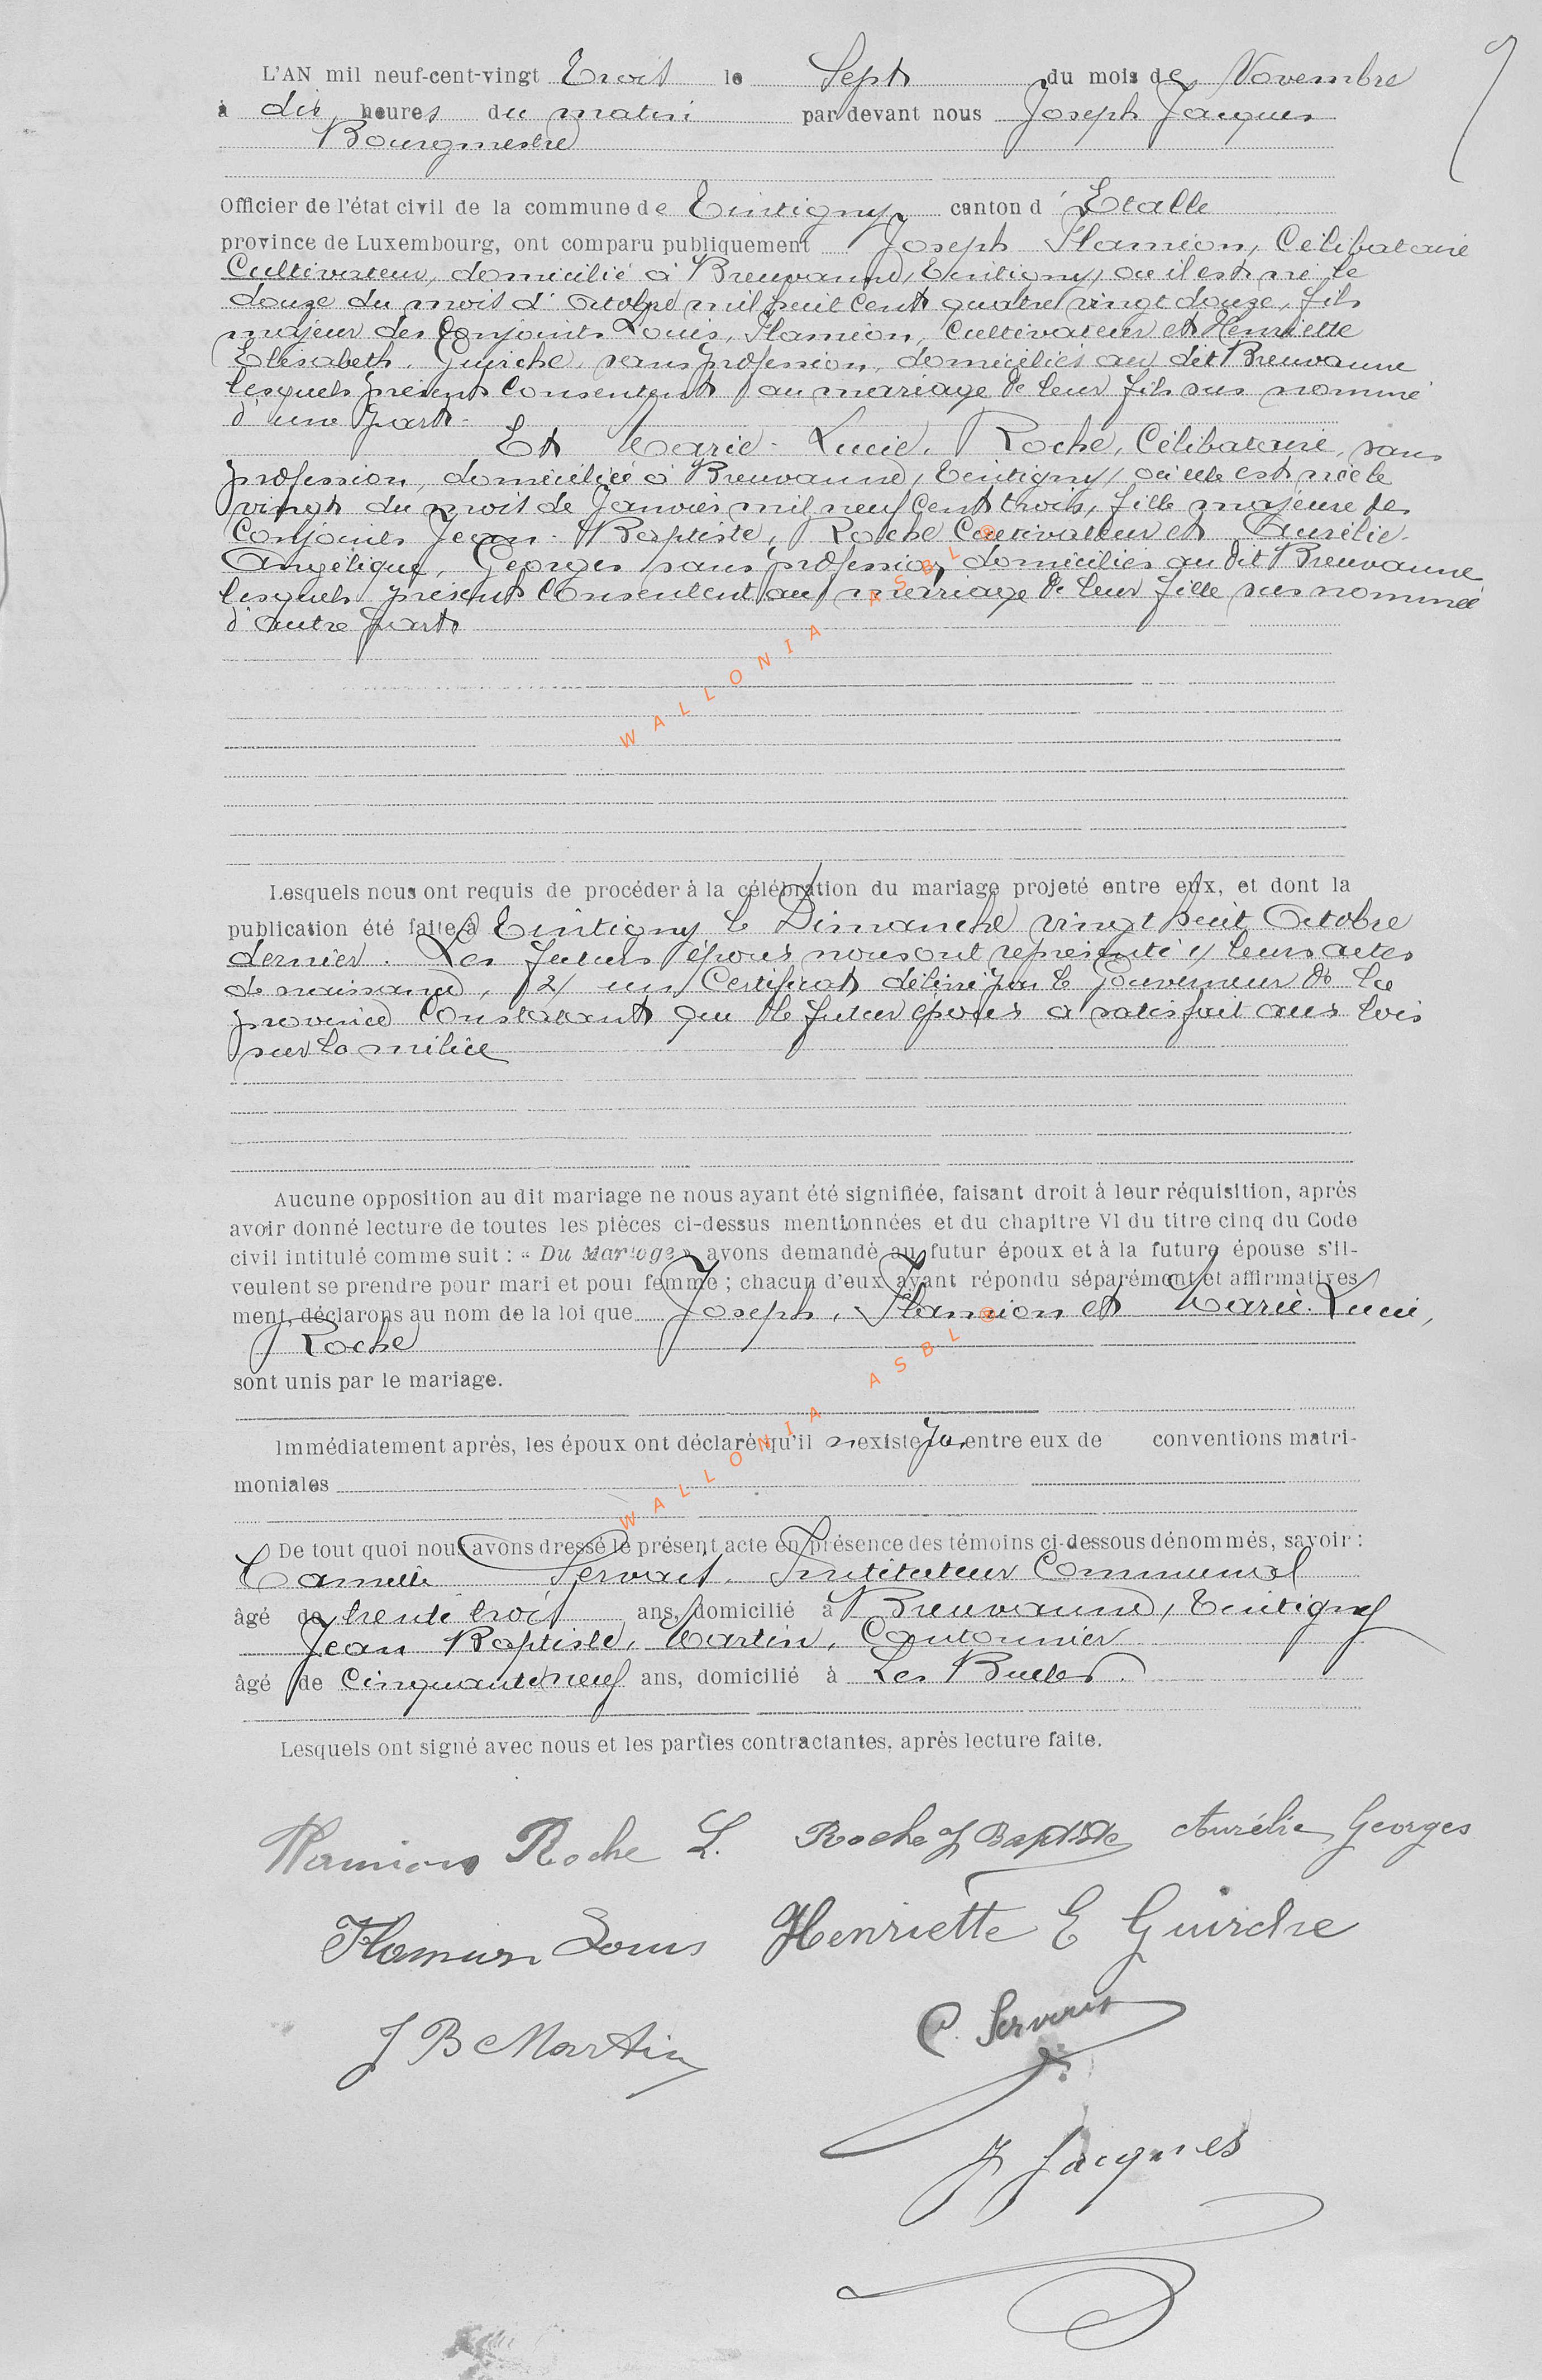 9
L'AN mil neuf-cent-vingt Trois le Sept du mois de Novembre
à dix heures du matin par devant nous Joseph Jacques
Bourgmestre
Officier de l'état civil de la commune de Tintigny canton d' Etalle
province de Luxembourg, ont comparu publiquement Joseph Flamion, Célibataire
Cultivateur, domicilié à Breuvanne, Tintigny, où il est né le
douze du mois d'Octobre mil huit cent quatre vingt douze, fils
majeur des Conjoints Louis, Flamion, Cultivateur et Henriette
Elisabeth. Guirche, sans profession, domiciliés au dit Breuvanne
lesquels présents consentent au mariage de leur fils sus nommé
d'une part.
Et Marie-Lucie, Roche, Célibataire, sans
profession, domiciliée à Breuvanne, Tintigny, où elle est née le
vingt du mois de Janvier mil neuf cent trois, fille majeure des
Conjoints Jean-Baptiste, Roche Cultivateur et Aurélie-
Angélique, Georges sans profession, domiciliés au dit Breuvanne
lesquels présents consentent au mariage de leur fille sus nommée
d'autre part
WALLONIA ASBL ®
Lesquels nous ont requis de procéder à la célébration du mariage projeté entre eux, et dont la
publication été faite à Tintigny le Dimanche vingt huit Octobre
dernier. Les futurs époux nous ont représenté 1/ leurs actes
de naissance, 2/ un Certificat délivré par le Gouverneur de la
province Constatant que le futur époux a satisfait aux lois
sur la milice
Aucune opposition au dit mariage ne nous ayant été signifiée, faisant droit à leur réquisition, après
avoir donné lecture de toutes les pièces ci-dessus mentionnées et du chapitre VI du titre cinq du Code
civil intitulé comme suit : « Du Mariage » avons demandé au futur époux et à la future épouse s'il-
veulent se prendre pour mari et pour femme ; chacun d'eux ayant répondu séparément et affirmatives
ment, déclarons au nom de la loi que Joseph, Flamion et Marie-Lucie,
Roche
sont unis par le mariage.
WALLONIA ASBL ®
Immédiatement après, les époux ont déclaré qu'il n'existe pas entre eux de conventions matri-
moniales
De tout quoi nous avons dressé le présent acte en présence des témoins ci-dessous dénommés, savoir :
Camille Servais. Instituteur Communal
âgé de trente trois ans, domicilié à Breuvanne, Tintigny
Jean Baptiste, Martin, Cantonnier
âgé de Cinquante neuf ans, domicilié à Les Bulles.
Lesquels ont signé avec nous et les parties contractantes, après lecture faite.
Flamion Roche L. Roche J Baptiste Aurélie Georges
Flamion Louis Henriette E Guirche
J B Martin C. Servais
J Jacques